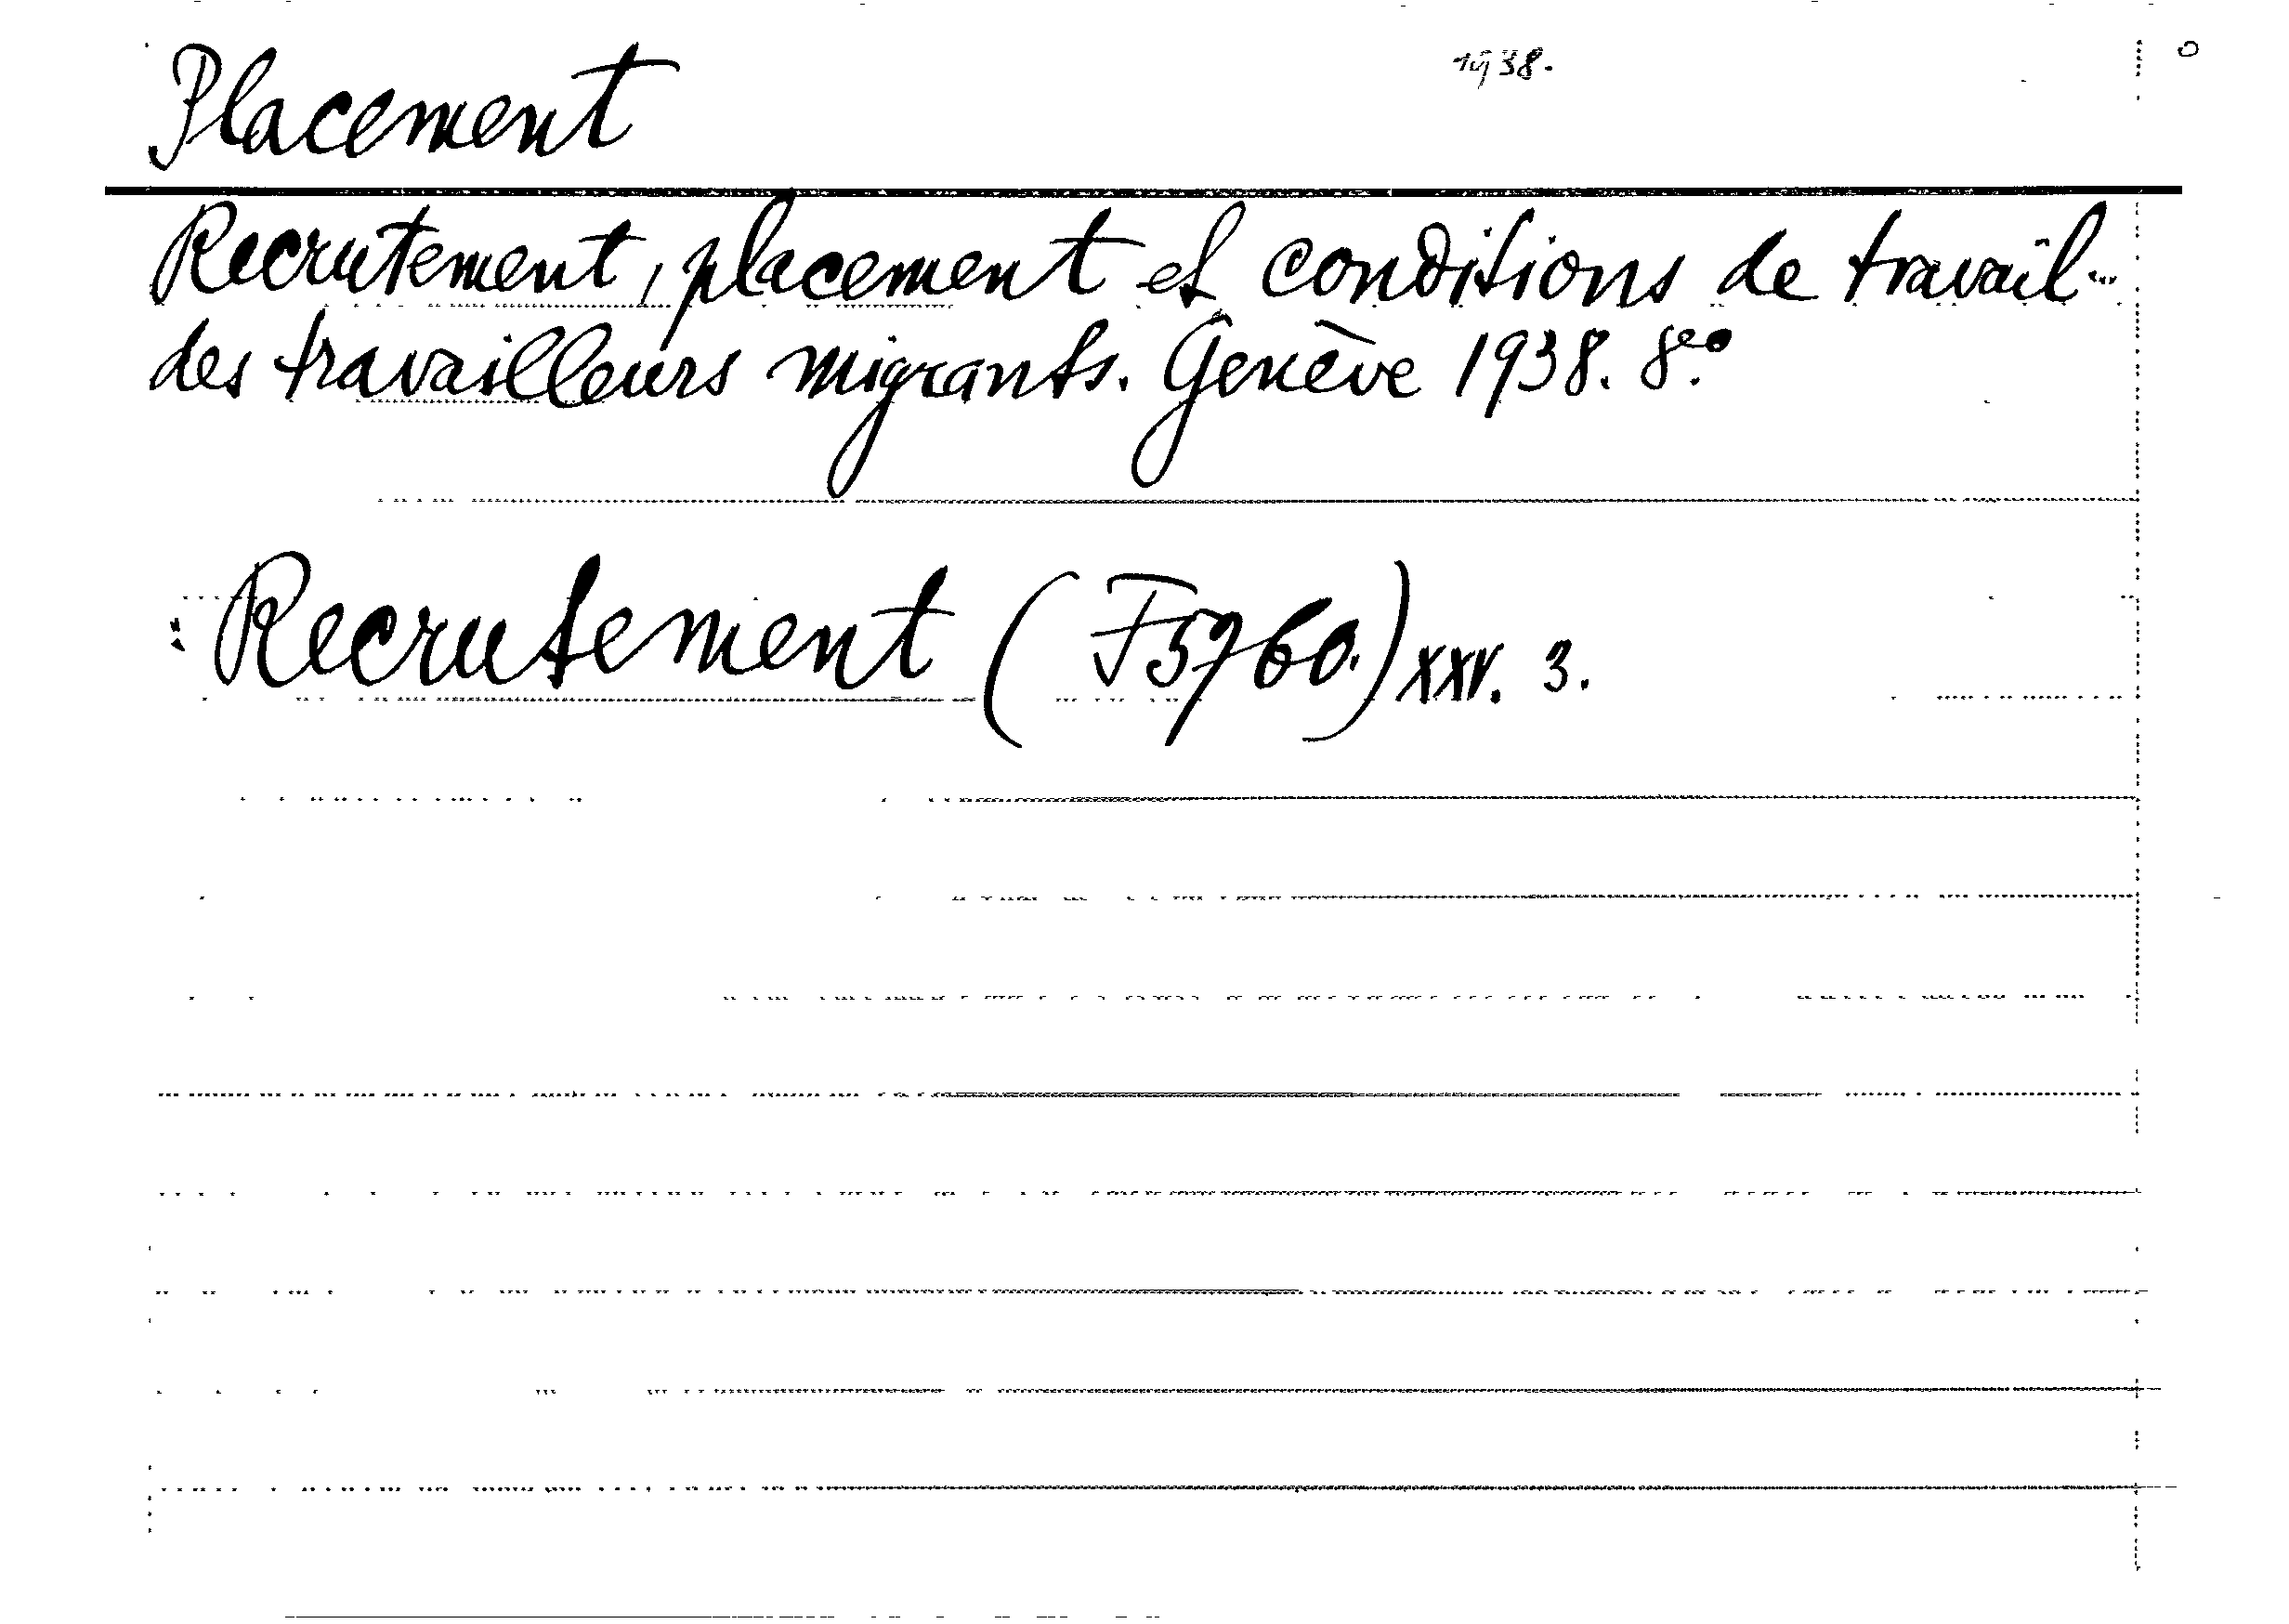 Placement 1938.
Recrutement, placement et conditions de travail...
des travailleurs migrants. Genève 1938. 8eo.
: Recrutement (F5760.) XXV. 3.